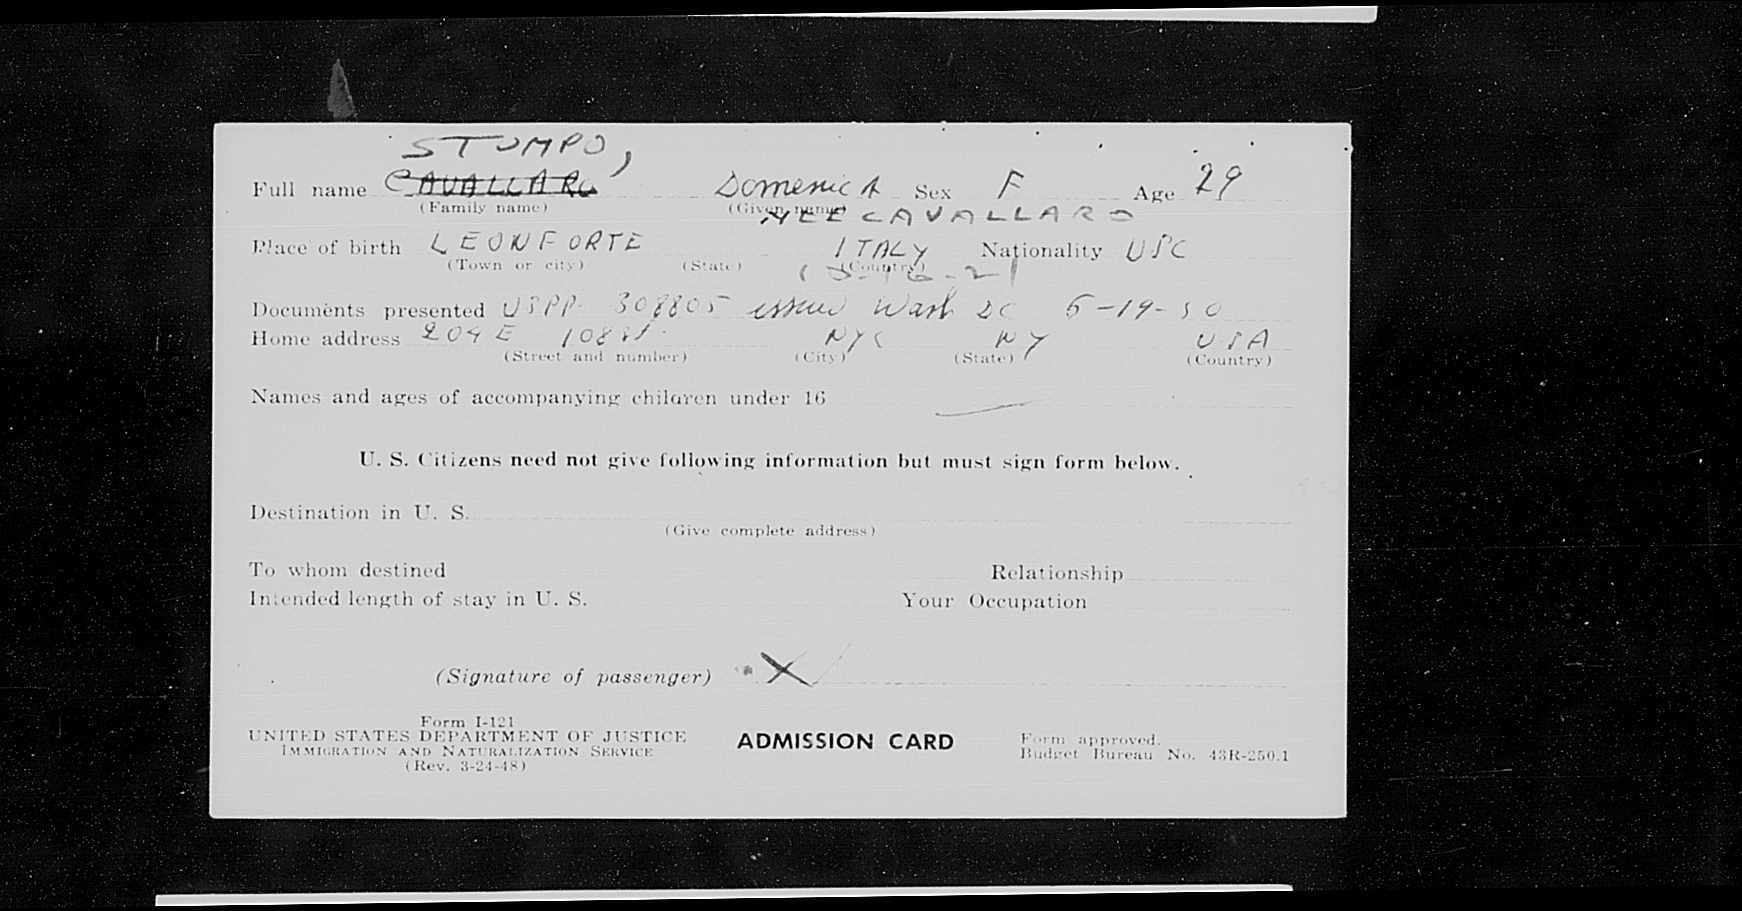 STUMPO,
Full name CAVALLARO Domenica Sex F Age 29
(Family name) (Given name)
NEE CAVALLARO
Place of birth LEONFORTE ITALY Nationality USC
(Town or city) (State) (Country)
Documents presented USPP 308805 issued Wash DC 5-19-50
Home address 204 E 108 St NYC NY USA
(Street and number) (City) (State) (Country)
Names and ages of accompanying children under 16
U. S. Citizens need not give following information but must sign form below.
Destination in U. S.
(Give complete address)
To whom destined Relationship
Intended length of stay in U. S. Your Occupation
(Signature of passenger) X
Form I-121
UNITED STATES DEPARTMENT OF JUSTICE
IMMIGRATION AND NATURALIZATION SERVICE
(Rev. 3-24-48)
ADMISSION CARD
Form approved.
Budget Bureau No. 43R-250.1